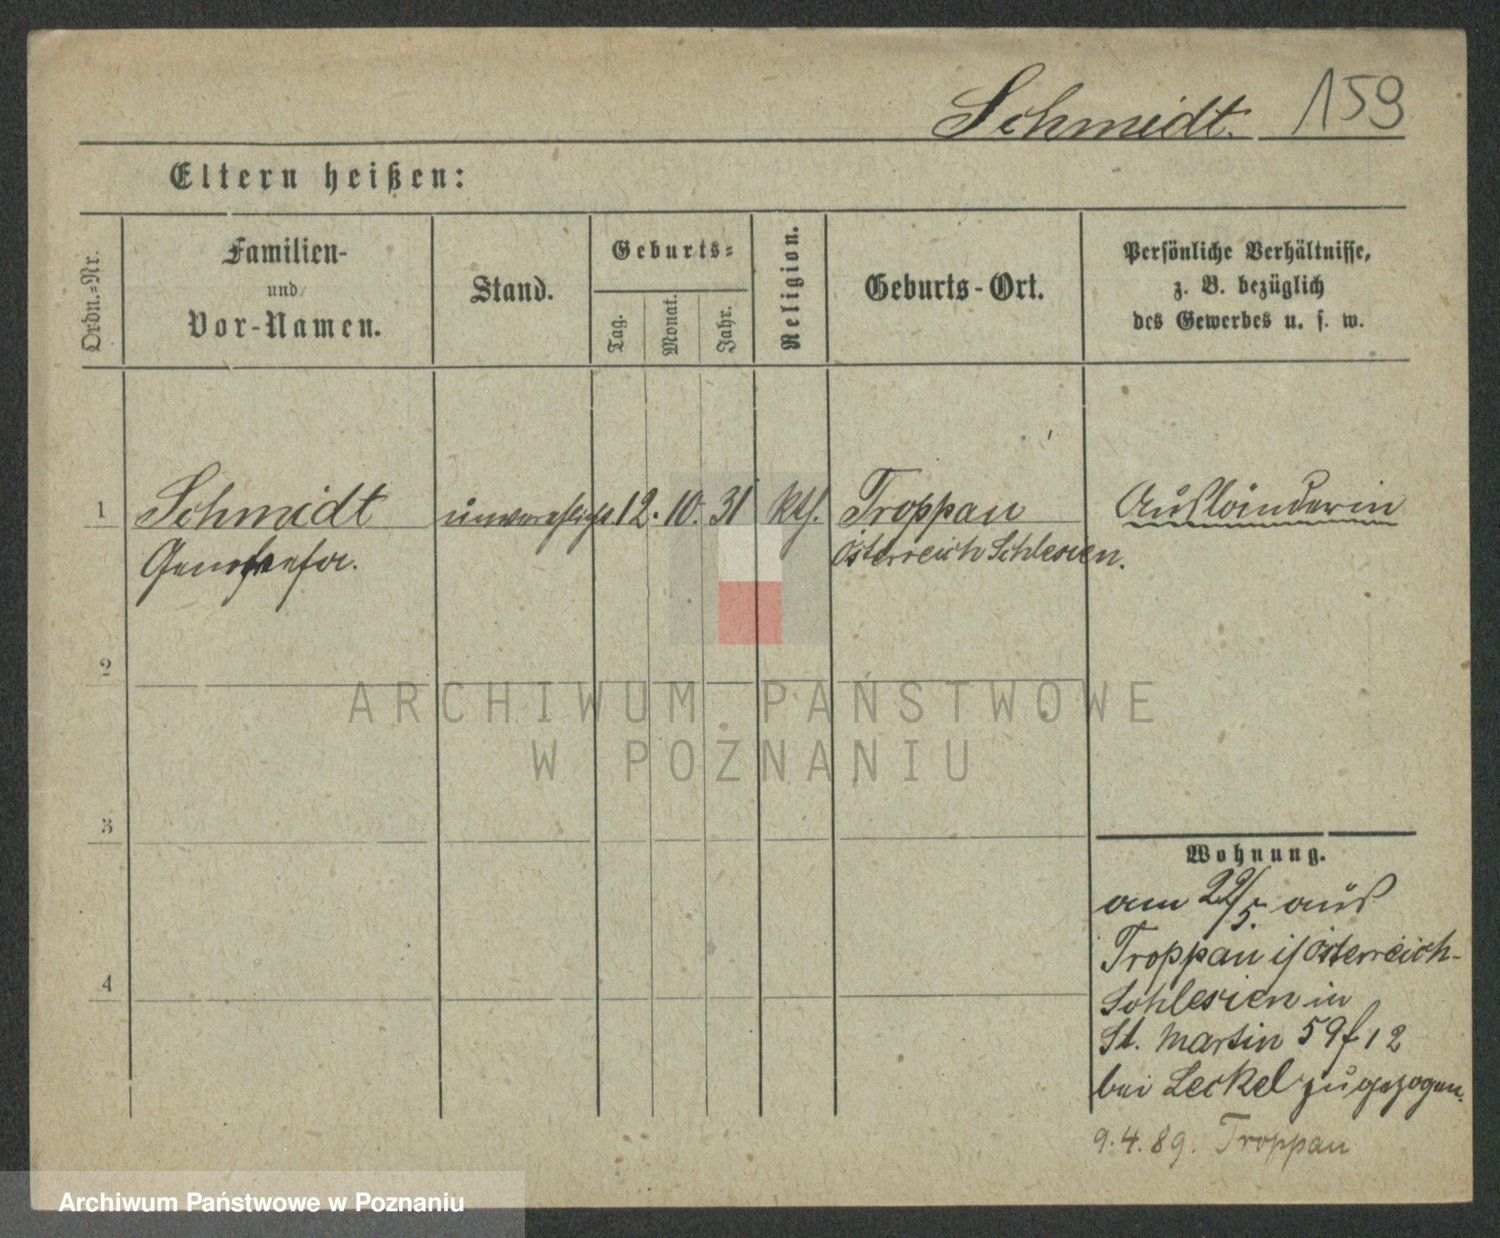 Schmidt. 159
Eltern heißen:
Ordn.-Nr.
Familien-
und
Vor-Namen.
Stand.
Geburts-
Tag.
Monat.
Jahr.
Religion.
Geburts-Ort.
Persönliche Verhältnisse,
z. B. bezüglich
des Gewerbes u. s. w.
1 Schmidt 12. 10. 31 kth. Troppau Ausländerin
Österreich Schlesien.
2
ARCHIWUM PAŃSTWOWE
W POZNANIU
3
Wohnung.
am 22/5. aus
Troppau i/Österreich-
4
Schlesien in
St. Martin 59 f 12
bei Leckel zugezogen.
9.4.89. Troppau
Archiwum Państwowe w Poznaniu